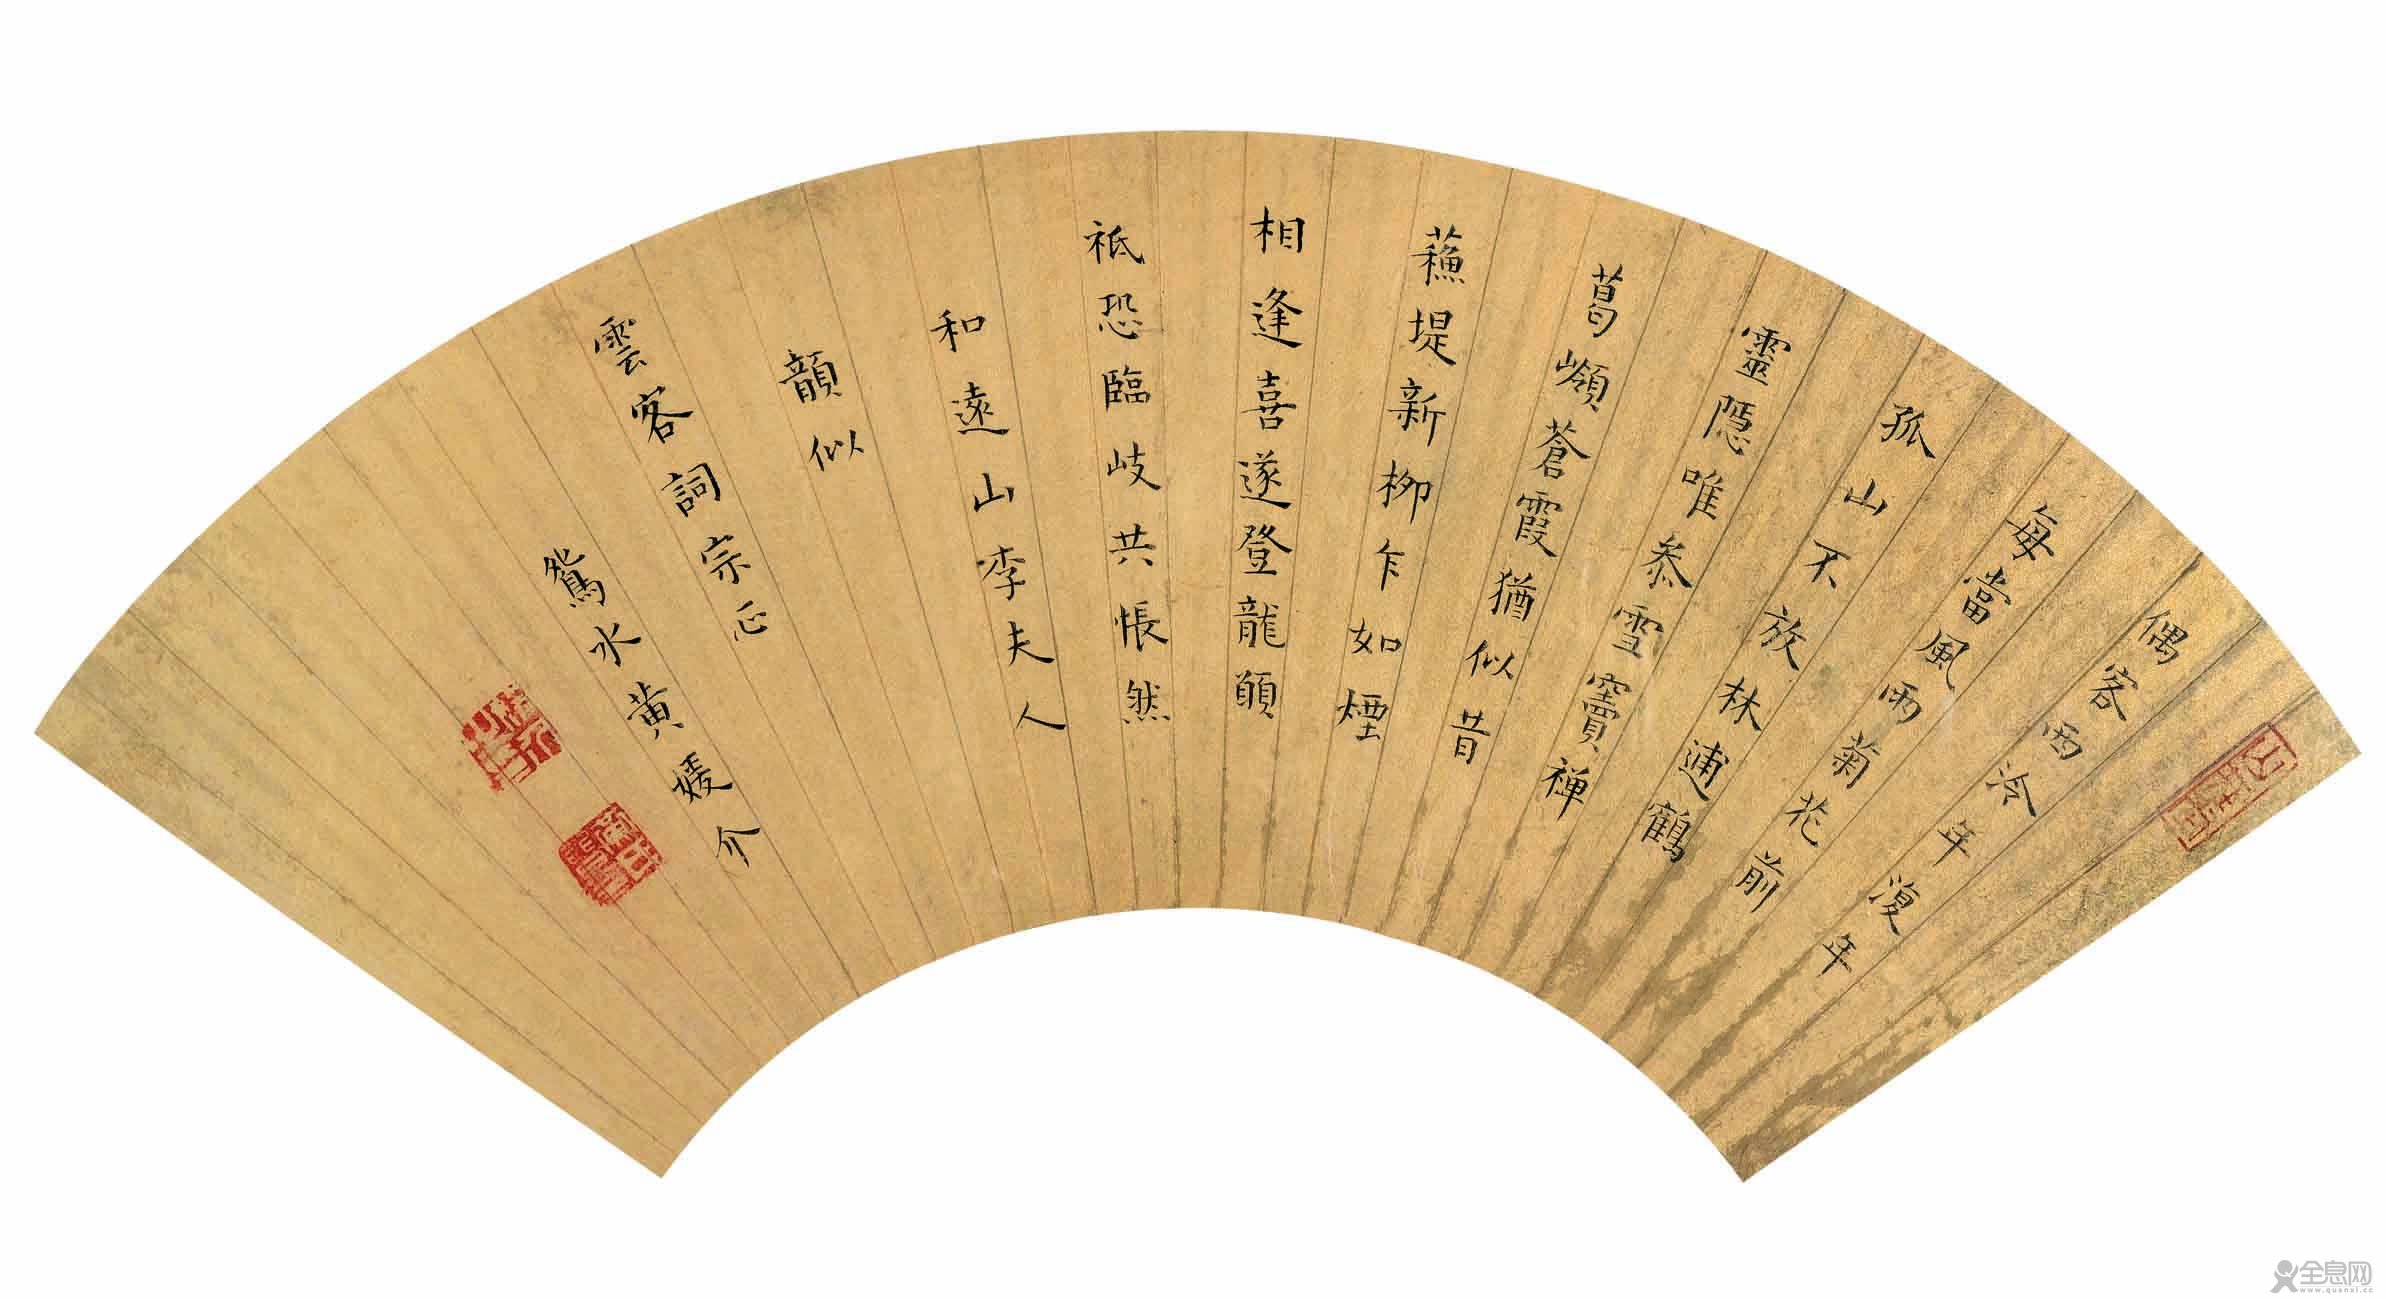 偶客西泠年復年
每當風雨菊花前
孤山不放林逋鶴
靈隱唯參雪竇禪
葛嶺蒼霞猶似昔
蘇堤新柳乍如煙
相逢喜遂登龍願
祗恐臨岐共悵然
和遠山李夫人
韻似
雲客詞宗正
鴛水黃媛介
全息网
www.quanxi.cc